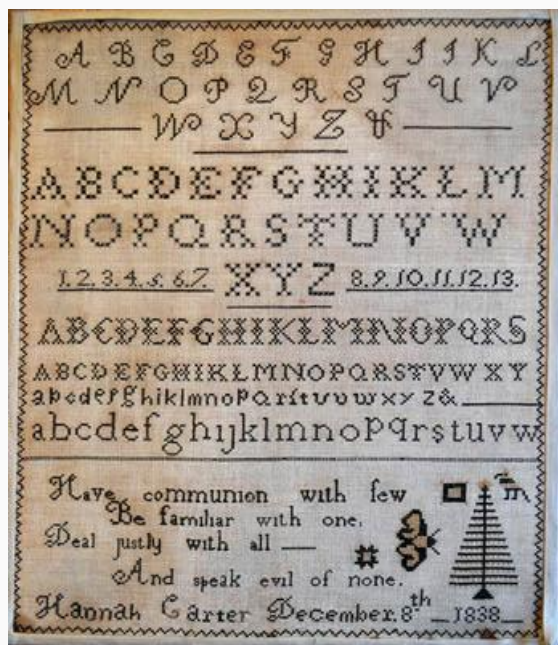 A B C D E F G H I J K L
M N O P Q R S T U V
W X Y Z &
A B C D E F G H I K L M
N O P Q R S T U V W
1.2.3.4.5.6.7. X Y Z 8.9.10.11.12.13.
A B C D E F G H I K L M N O P Q R S
A B C D E F G H I K L M N O P Q R S T V W X Y
a b c d e f g h i k l m n o p q r ſ t u v w x y z &
a b c d e f g h i j k l m n o p q r s t u v w
Have communion with few
Be familiar with one.
Deal justly with all —
And speak evil of none.
Hannah Carter December. 8th — 1838 —